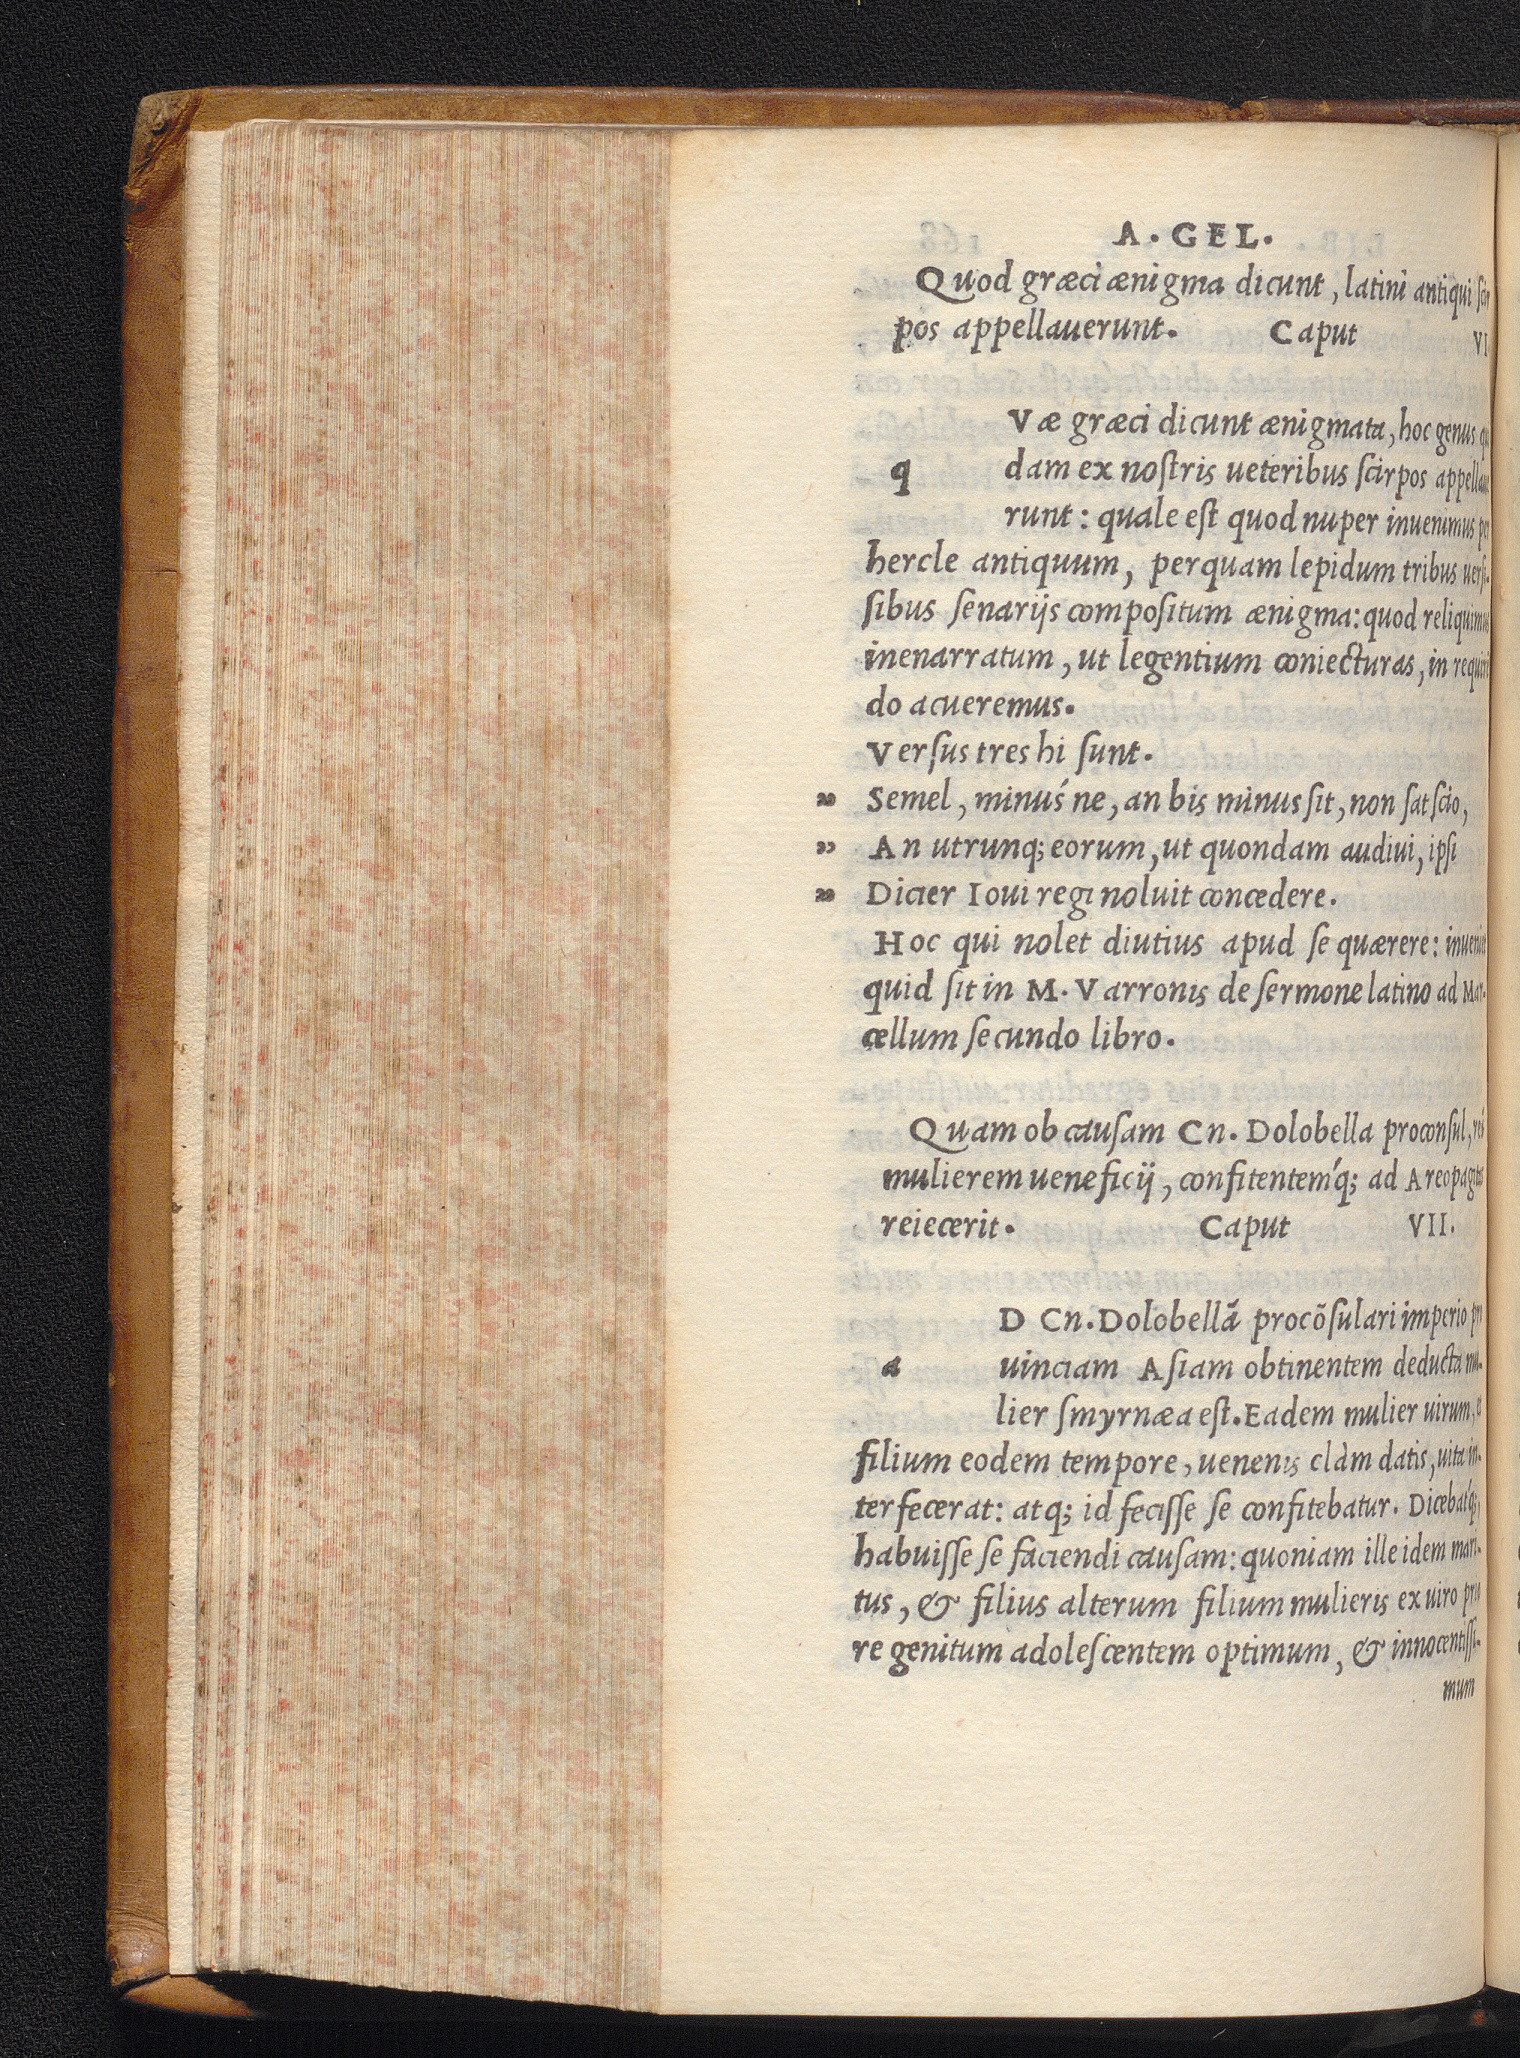 A. GEL.
Quod græci ænigma dicunt, latini antiqui
pos appellauerunt. Caput VI
Væ græci dicunt ænigmata, hoc genus
q dam ex nostris ueteribus scirpos
runt: quale est quod nuper inuenimus
hercle antiquum, perquam lepidum tribus uersi-
sibus senarijs compositum ænigma: quod reliquimus
inenarratum, ut legentium coniecturas, in
do acueremus.
Versus tres hi sunt.
" Semel, minus´ne, an bis minus sit, non sat scio,
" An utrunq; eorum, ut quondam audiui, ipsi
" Dicier Ioui regi noluit concedere.
Hoc qui nolet diutius apud se quærere: inueniet
quid sit in M. Varronis de sermone latino ad Mar-
cellum secundo libro.
Quam ob causam Cn. Dolobella proconsul,
mulierem ueneficij, confitentem´q; ad Areopagitas
reiecerit. Caput VII.
D Cn. Dolobellã procõsulari imperio
a uinciam Asiam obtinentem deducta mu-
lier smyrnæa est. Eadem mulier uirum,
filium eodem tempore, uenenis clàm datis, uita in-
terfecerat: atq; id fecisse se confitebatur. Dicebat´q;
habuisse se faciendi causam: quoniam ille idem mari-
tus, & filius alterum filium mulieris ex uiro
re genitum adolescentem optimum, & innocentissi-
mum